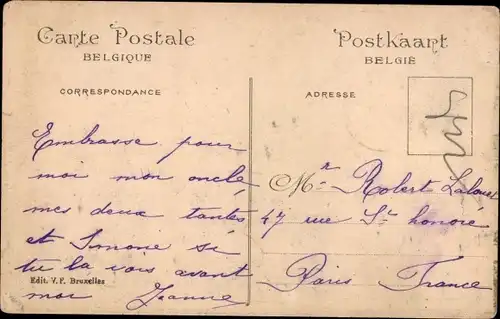 Carte Postale
BELGIQUE
CORRESPONDANCE
Embrasse pour
moi mon oncle
mes deux tantes
et Simone si
tu la vois avant
moi Jeanne
Edit. V.F. Bruxelles
Postkaart
BELGIË
ADRESSE
Mr Robert
47 rue St honoré
Paris France